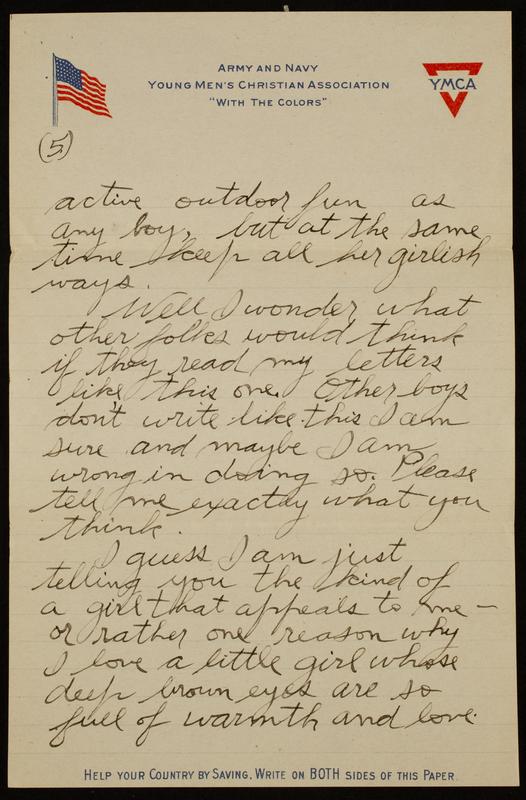 ARMY AND NAVY
YOUNG MEN'S CHRISTIAN ASSOCIATION
"WITH THE COLORS"
YMCA
(5)
active outdoor fun as
any boy, but at the same
time keep all her girlish
ways.
Well I wonder what
other folks would think
if they read my letters
like this one. Other boys
don't write like this I am
sure and maybe I am
wrong in doing so. Please
tell me exactly what you
think.
I guess I am just
telling you the kind of
a girl that appeals to me —
or rather one reason why
I love a little girl whose
deep brown eyes are so
full of warmth and love.
HELP YOUR COUNTRY BY SAVING. WRITE ON BOTH SIDES OF THIS PAPER.